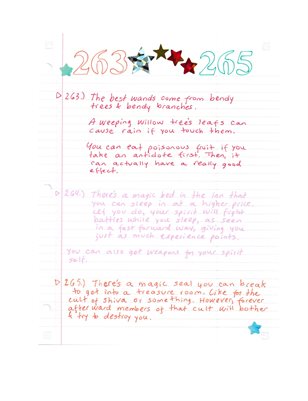 263 265
263.) The best wands come from bendy
trees & bendy branches.
A weeping willow tree's leafs can
cause rain if you touch them.
You can eat poisonous fruit if you
take an antidote first. Then, it
can actually have a really good
effect.
264.) There's a magic bed in the inn that
you can sleep in at a higher price.
Let you do, your spirit will fight
battles while you sleep, as seen
in a fast forward way, giving you
just as much experience points.
You can also get weapons for your spirit
self.
265.) There's a magic seal you can break
to get into a treasure room. Like for the
cult of Shiva or something. However, forever
afterward members of that cult will bother
& try to destroy you.